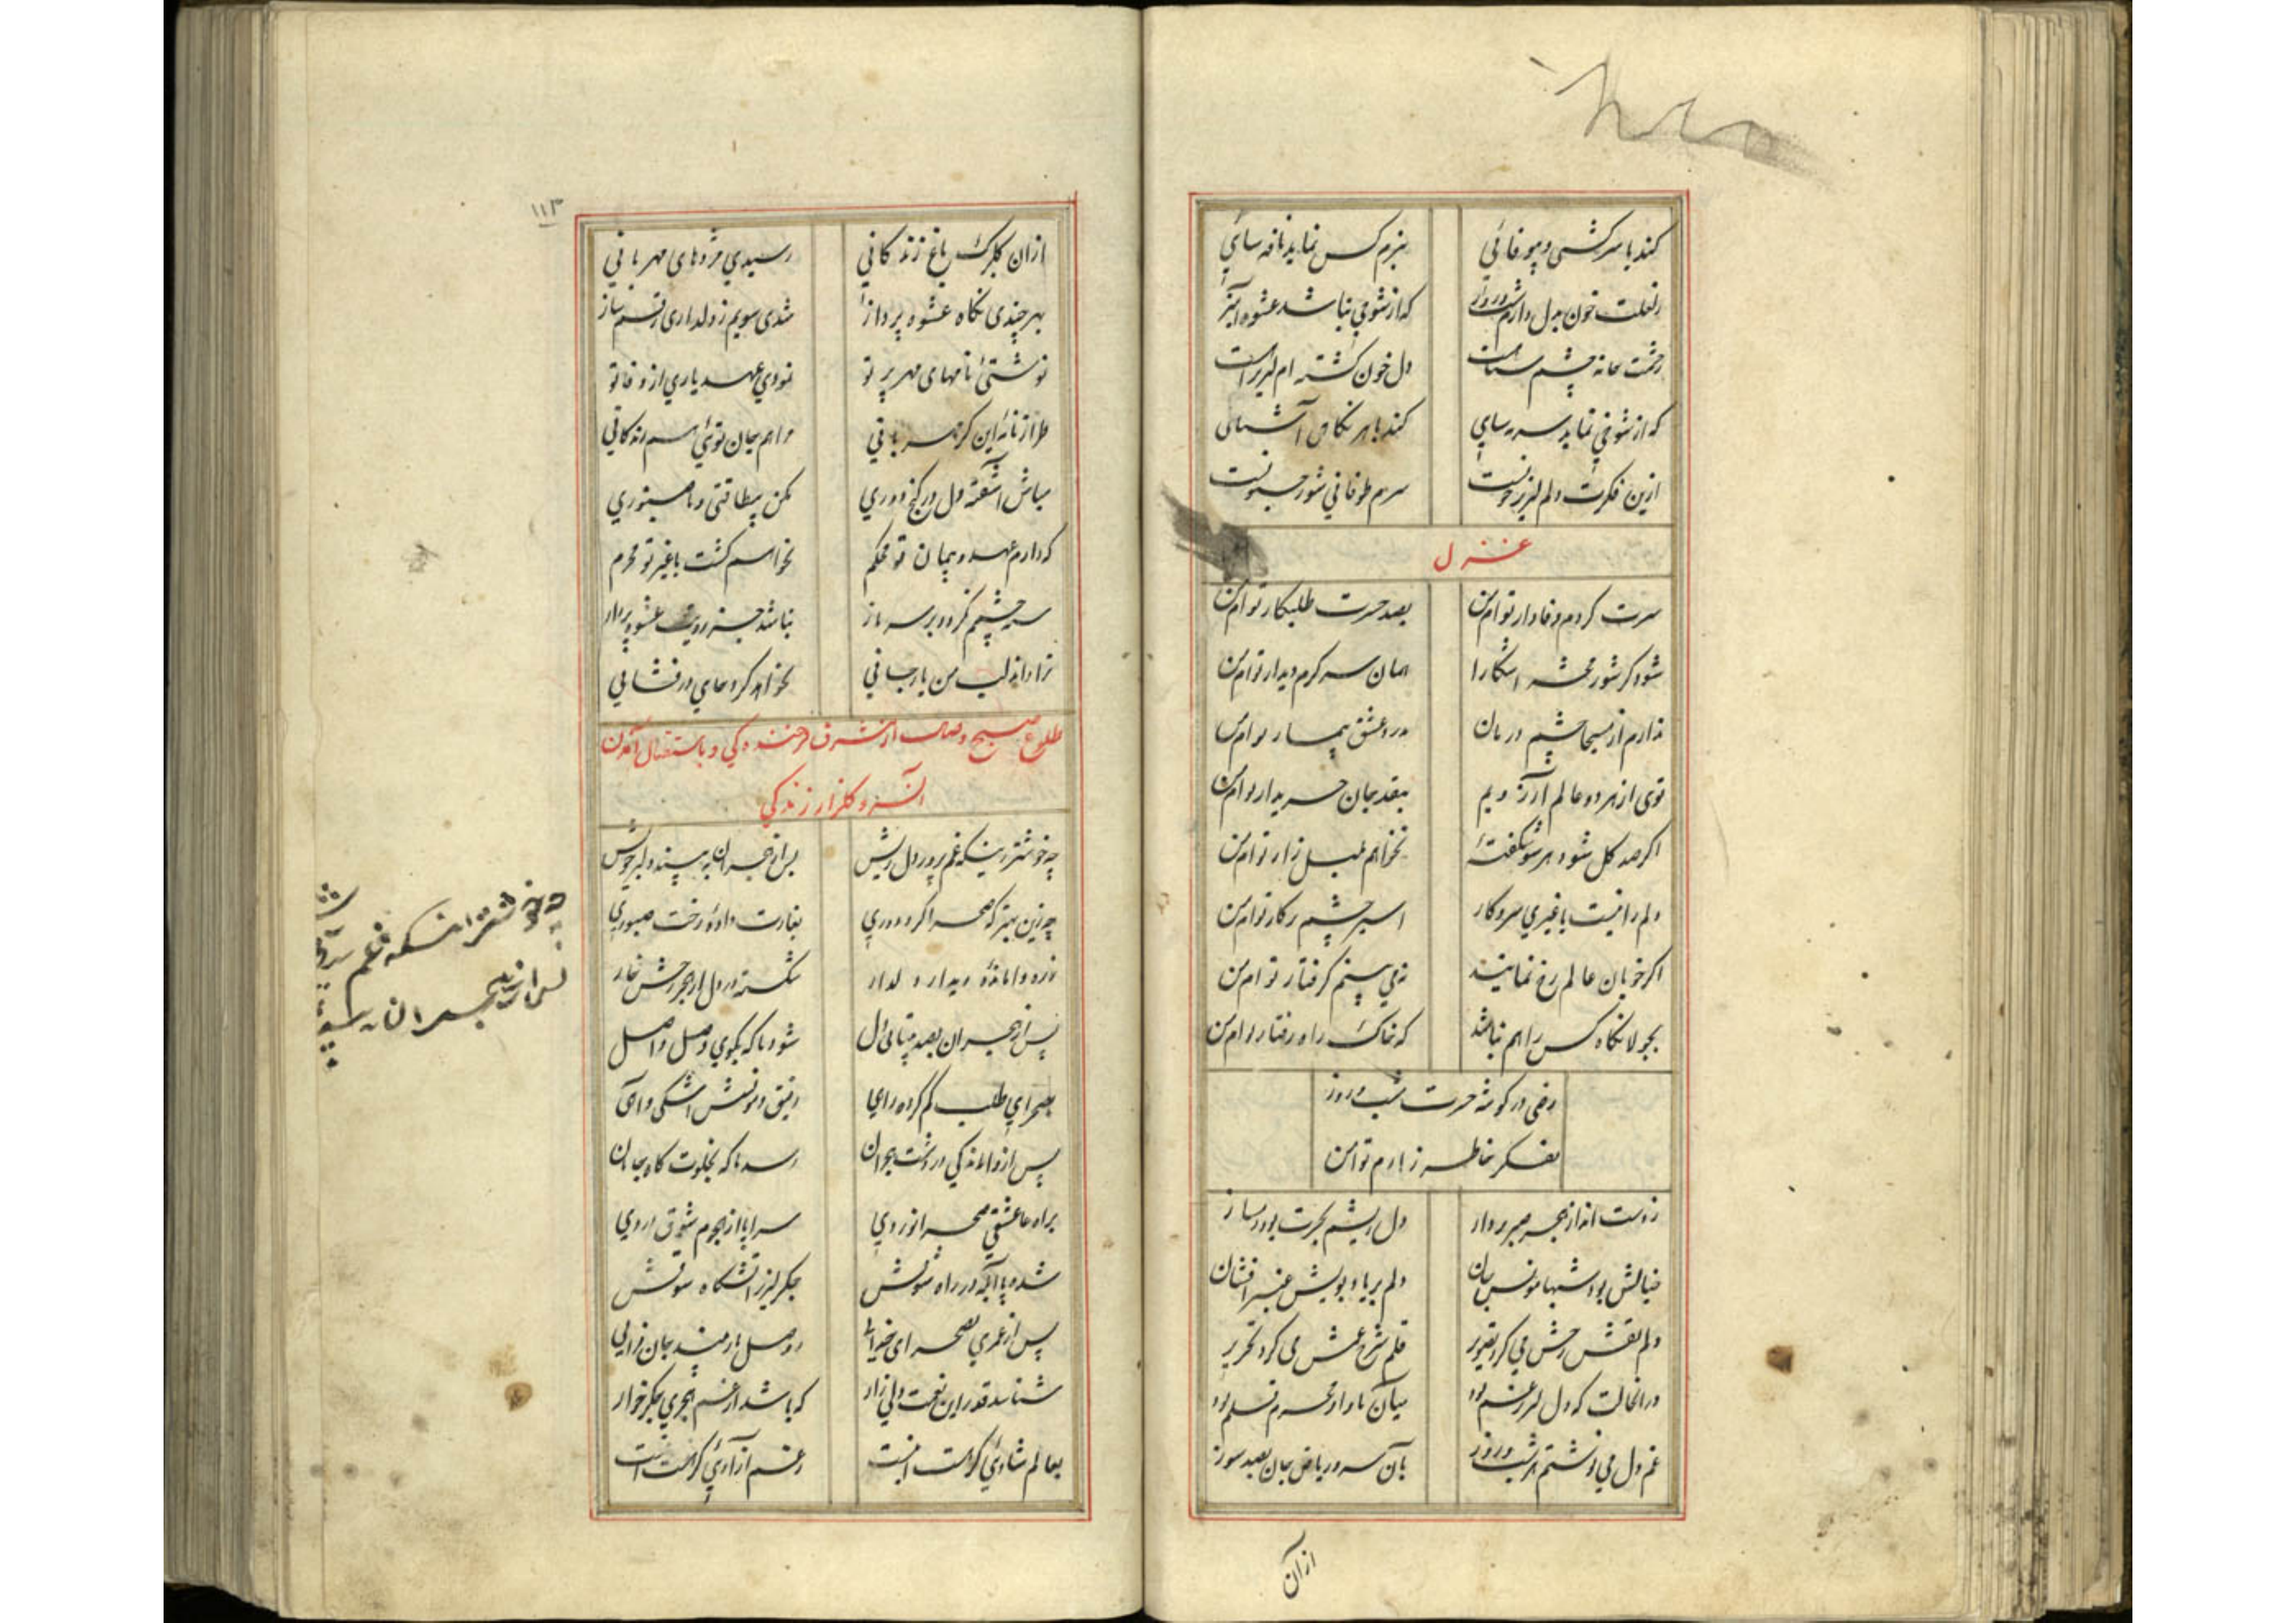 کند با سرکشی و بیوفائی بزم کس نماید نافه سائی
ز لعلت خون بدل دارم شب و روز که از شوخی نباشد عشوه
چشم دل خون گشته ام لبریز
که از شوخی نماید سرمه سایی کند با هر نگاهی آشنای
ازین فکرت دلم لبریز خونست سرم طوفانی شور جنونست
غزل
سرت کردم وفادار توام من بصد حسرت طلبکار توام من
شود گر شور محشر آشکارا همان سرگرم دیدار توام من
ندارم از مسیحا چشم درمان درد عشق بیمار توام من
توی از هر دو عالم آرزویم بنقد جان خریدار توام من
اگر صد گل شود هر سو شکفته نخواهم بلبل زار توام من
دلم را نیست با غیری سروکار اسیر چشم توام من
اگر خوبان عالم رخ نمایند نمی بینم گرفتار توام من
بجولانگاه کس راهم نباشد که خاک راه رفتار توام من
رضی در گوشه حسرت شب و روز
بفکر خاطر توام من
ز دست انداز هجر دل ریشم بحسرت بود
خیالش بود شبها مونس جان دلم بر یاد بویش عنبر افشان
دلم نقش رخش می کرد تصویر قلم شرح غمش می کرد تحریر
در آنحالت که دل غم بود میان ما و او محرم قلم بود
غم دل می نوشتم هر شب و روز بآن سرو ریاض جان بصد سوز
از آن
۱۱۳
ازان گلبرگ باغ زندگانی رسیدی مژدهای مهربانی
بهر چندی نگاه عشوه پرداز شدی سویم ز دلداری رقم ساز
نوشتی نامهای مهر پرتو نمودی عهد یاری از وفا تو
طراز نامه این کز مهربانی مراهم بجان توئی زندگانی
مباش آشفته دل در کنج دوری مکن بیطاقتی و ناصبوری
که دارم عهد و پیمان تو محکم نخواهم گشت با غیر تو محرم
سیه چشمم نگردد بر سر ناز نباشد جز برویت عشوه پرداز
ترا داند لب من یار جانی نخواهد کرد جای درفشانی
طلوع صبح وصال از مشرق فرخندگی و باستقبال آمدن
آن سرو گلزار زندگی
چه خوشتر زینکه غم پرور دل ریش پس از هجران به بیند دلبر خویش
چه زین بهتر که صحراگرد دوری بغارت داده رخت صبوری
وامانده دیدار دلدار شکسته در دل از هجر رخش خار
پس از هجران بصد بیتابی دل شود ناگه بکوی وصل واصل
بصحرای طلب گم کرده راهی رفیق و مونسش اشکی و آهی
پس از واماندگی در دشت هجران رسد ناگه بخلوت گاه جانان
براه عاشقی صحرا نوردی سراپا از هجوم شوق دردی
شده پا آبله در راه شوقش جگر لبریز آتشگاه شوقش
پس از عمری بصحرای وصل یار بیند جان
شناسد قدر این نعمت دلی زار که باشد از غم هجری جگر خوار
بعالم شادئی گر هست اینست ز غم آزادئی گر هست اینست
چه خوشتر اینکه غم
پس از هجران به بیند